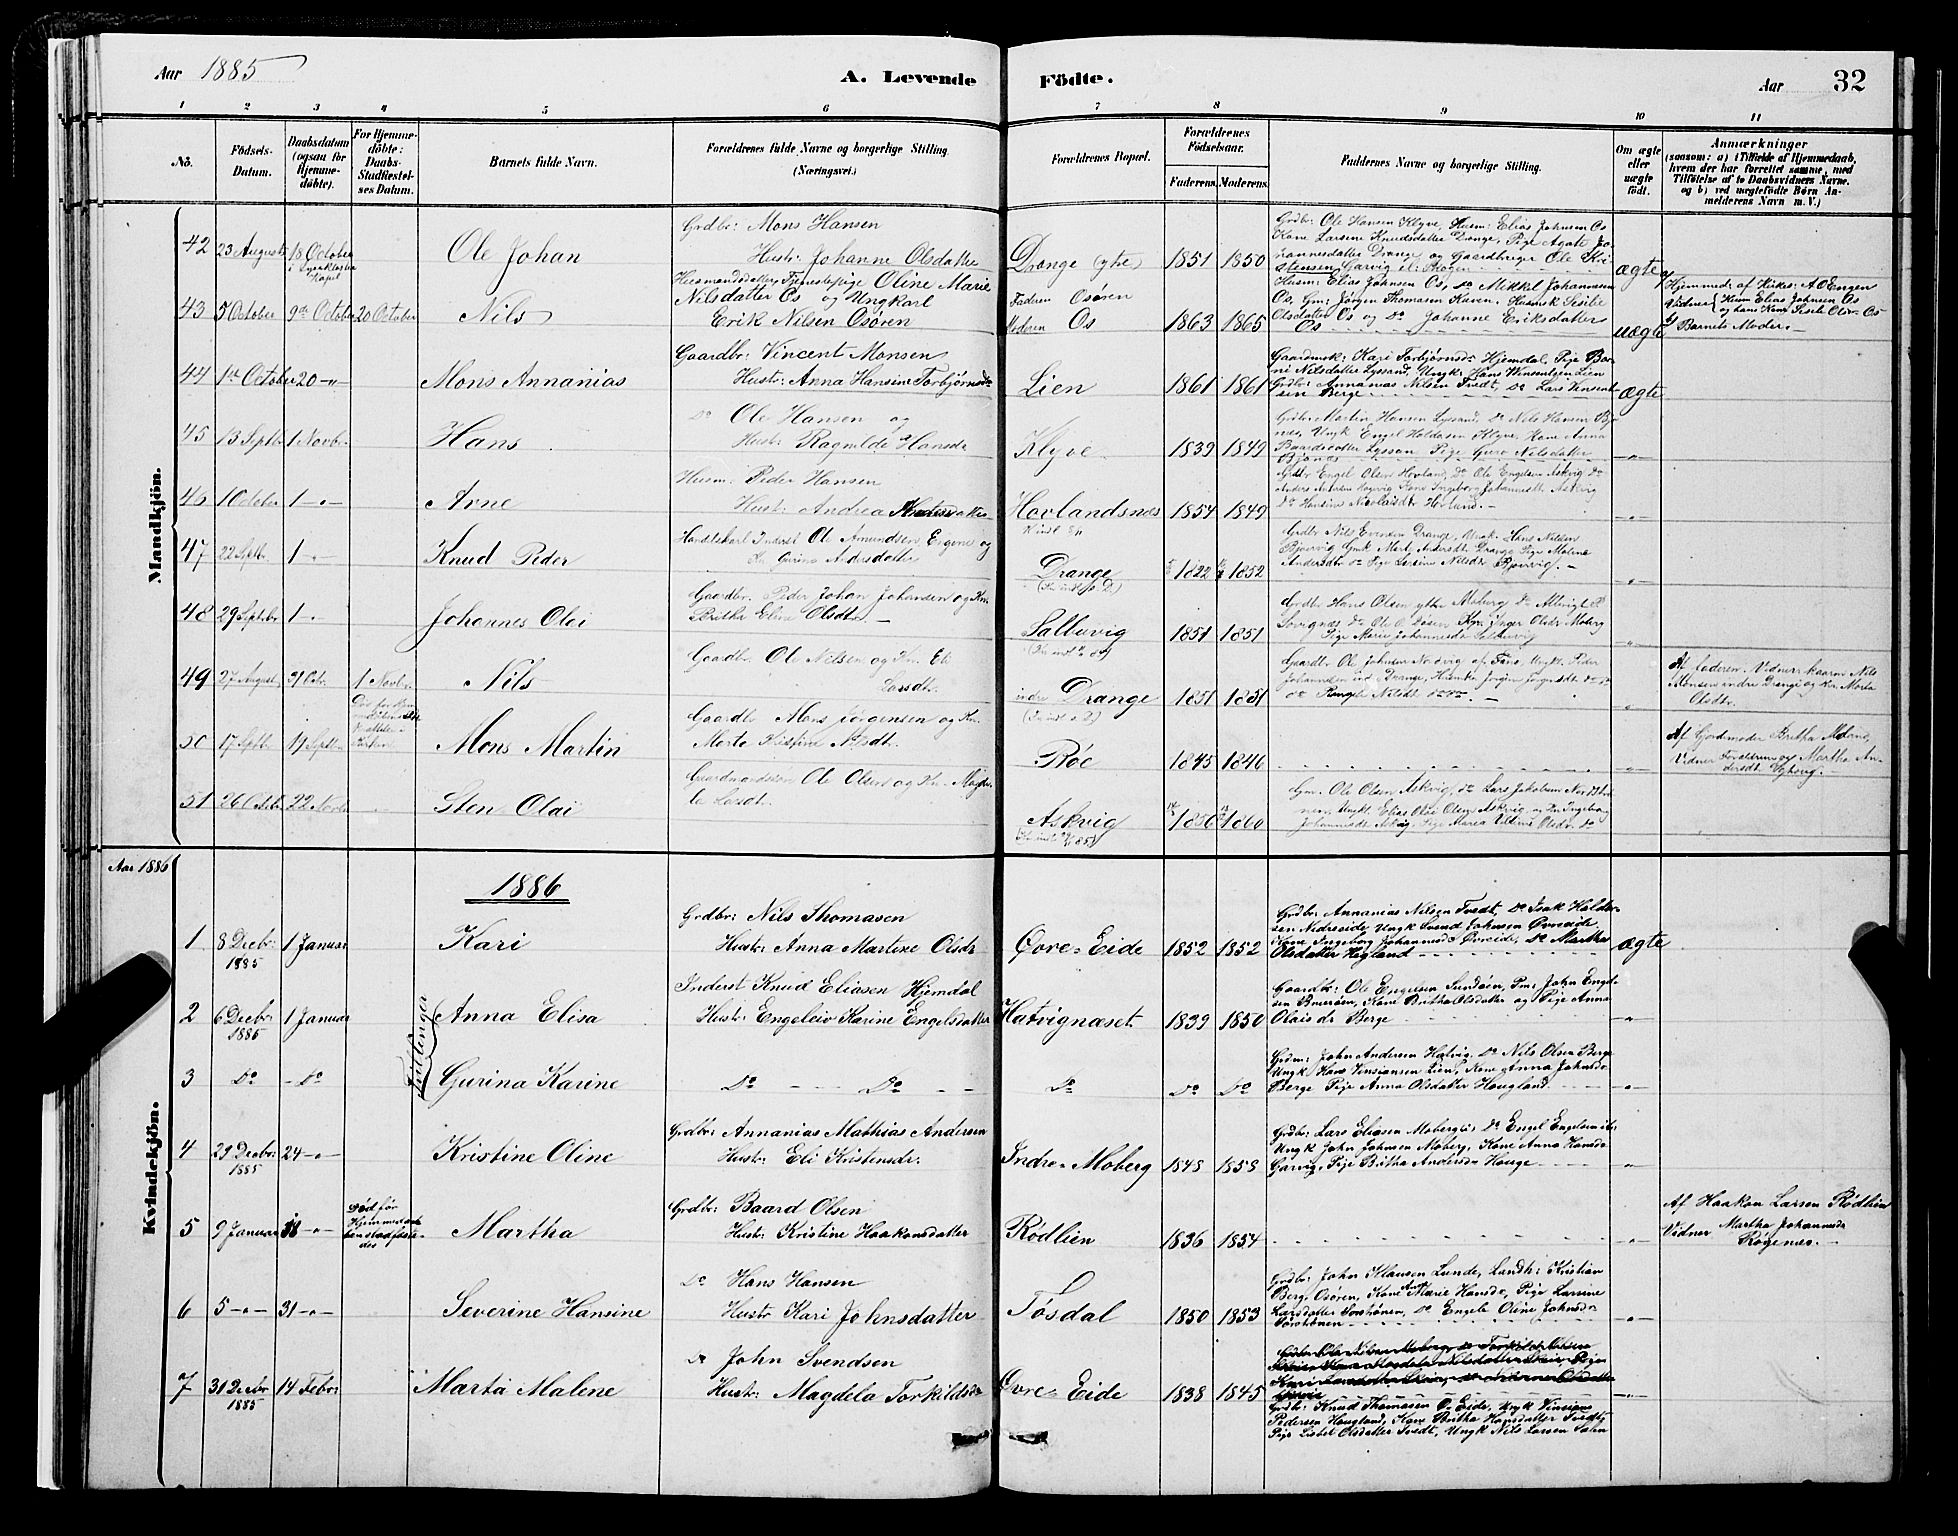 Aar 1885
A. Levende Födte.
Aar 32
1 2 3 4 5 6 7 8 9 10 11
No.
Födsels-Datum.
Daabsdatum (ogsaa for Hjemme-döbte).
For Hjemme-döbte: Daabs-Stadfæstel-ses Datum.
Barnets fulde Navn.
Forældrenes fulde Navne og borgerlige Stilling. (Næringsvei.)
Forældrenes Bopæl.
Forældrenes Födselsaar.
Faderens. Moderens.
Faddernes Navne og borgerlige Stilling.
Om ægte eller uægte födt.
Anmærkninger
(saasom: a) i Tilfælde af Hjemmedaab,
hvem der har forrettet samme, med
Tilföielse af to Daabsvidners Navne,
og b) ved uægtefödte Börn An-
melderens Navn m. V.)
Mandkjön.
42 23 August 18 October
Ole Johan
Grdbr: Mons Hansen
Hustr: Johanne Olsdatter
Drange (ytre) 1851 1850
Grdbr: Ole Hansen Klyve, Husm: Elias Johnsen Os
Kone Larsine Knudsdatter Drange, Pige Agate Jo-
hannesdatter Drange og Gaardbruger Ole Kri-
stensen Garvig
ægte
43 5 October 9de October 20 October
Nils
Husmandsdatter, Tjenestepige Oline Marie
Nilsdatter Os og Ungkarl
Erik Nilsen Osøren
Faderen Osören
Moderen Os 1863 1865
Husm: Elias Johnsen Os, Do Mikkel Johannesen
Os, Gm: Jörgen Thomasen Kuven, Husmk Sesile
Olsdatter Os og Do Johanne Eriksdatter
Os
uægte
Hjemmed: af Kirks: A O Engen
Vidner Husm Elias Johnsen Os
og hans Kone Sesile Olsdr. Os
Barnets Moder.
44 1ste October 20 -"-
Mons Annanias
Gaardbr: Vincent Monsen
Hustr: Anna Hansine Torbjørnsdr
Lien 1861 1861
Gaardmsk: Kari Torbjørnsdr Hjemdal, Pige Bor-
ni Nilsdatter Lyssand, Ungk: Hans Vinsentsen Lien
Grdbr: Annanias Nilsen Tvedt, Do Lars Vinsent-
sen Berge
ægte
45 13 Septbr 1 Novbr
Hans
Do Ole Hansen og
Hustr: Ragnilde Hansdr
Klyve 1839 1849
Grdbr Martin Hansen Lyssand, Do Nils Hansen Bjø-
næs, Ungk Engel Haldosen Klyve, Kone Anna
Baardsdatter Lyssan Pige Guro Nilsdatter
Bjønes
-"-
46 1 October 1 -"-
Arne
Husm: Peder Hansen
Hustr: Andrea Andersdatter
Hovlandsnes 1854 1849
Grdbr Engel Olsen Hovland, Do Ole Engelsen Askvig Do
Kone Ingeborg Johannesdtr Askvig
Do Hansine Nicolaisdtr Hovland.
-"-
47 22 Septbr. 1 -"-
Knud Peder
Handelskarl Inderst Ole Amundsen Engene og
Kn. Gurine Andersdatter
Drange 1822 1852
Grdbr Nils Drange, Ungk. Hans Nilsen
Bjørvig Gmk Marte Andersdtr Drange Pige Malene
Andersdtr Do Pige Larsine Nilsdtr Bjørvig.
48 29 Septbr 1 -"-
Johannes Olai
Gaardbr. Peder Johan Johansen og Kn.
Britha Eline Olsdtr.
Salbuvig 1851 1851
Grdbr Hans Olsen ytre Moberg Do
Sovignæs Do Ole O. Kn. Inger Olsdr Moberg
Pige Marie Johannesdr Salbuvig
49 27 August 31 Octbr. 1 Novbr.
Nils
Gaardbr. Ole Nilsen og Kn. Eli
Larsdtr.
indre Drange 1851 1851
Gaardbr Ole Johnsen Nordvig af Fane, Ungk. Peder
Johannesen ind Drange,
Do Nilsdtr
Af faderen. Vidner Naaren Nils
Monsen indre Drange og Kn. Marta
Olsdtr.
50 17 Septbr. 19 Septbr.
Mons Martin
Gaardbr Mons Jørgensen og Kn.
Marte Kristine Nilsdtr.
Røe 1845 1846
Af Gjordmoder Britha Moberg,
Vidner Forældrene og Martha An-
dersdtr
51 26 Octbr 22 Novbr
Sten Olai
Gaardmandssøn Ole Olsen og Kn. Magde-
la Larsdtr.
Askvig 1850 1860
Gm. Ole Olsen Askvig, Do Lars Jakobsen
Ungk. Elias Olai Olsen Askvig, Kn Ingeborg
Johannesdtr Askvig, Pige Maria Olsdr. Do
Aar 1886
1886
Kvindekjön.
1 8 Decbr 1885 1 Januar
Kari
Grdbr: Nils Thomasen
Hustr: Anna Martine Olsdr
Øvre-Eide 1852 1852
Grdbr: Annanias Nilsen Tvedt, Do Isak Haldor-
sen Nedreeide, Ungk Svend Johnsen Øvreeide
Kone Ingeborg Johannesdr Øvreeide, Do Martha
Olsdatter Hegland
ægte
Tvillinger
2 6 Decbr 1885 1 Januar
Anna Elisa
Inderst Knud Eliasen Hjemdal
Hustr: Engeleiv Karine Engelsdatter
Hatvignæset 1839 1850
Gaardbr: Ole Engelsen Sundöen, Do: John Engel-
sen Bruröen, Kone Britha Olsdatter og Pige Anna
Olais dr Berge
-"-
3 Do - Do
Gurina Karine
Do - - Do - -
Do Do Do
Grdm: John Andersen Hatvig, Do Nils Olsen Berge
Ungk Hans Vinsiansen Lien, Kone Anna Johnsdr
Berge Pige Anna Olsdatter Hougland
-"-
4 29 Decbr: 1885 24 -"-
Kristine Oline
Grdbr: Annanias Mathias Andersen
Hustr: Eli Kristensdr.
Indre-Moberg 1848 1858
Grdbr: Lars Eliasen Moberglie, Do Engel Engelsen ib:
Ungk John Johnsen Moberg, Kone Anna Hansdr
Garvig, Pige Britha Andersdr Houge
-"-
5 9 Januar 18 -"-
Död før
Hjemmedaab-
en stadfæste-
des
Martha
Grdbr: Baard Olsen
Hustr: Kristine Haakonsdatter
Rødlien 1836 1854
-"-
Af Haakon Larsen Rødlien
Vidner Martha Johannesdr
Røgenes.
6 5 -"- 31 -"-
Severine Hansine
Do Hans Hansen
Hustr Kari Johnsdatter
Tøsdal 1850 1853
Grdbr: John Klausen Lunde, Landh: Kristian
Berg, Osören, Kone Ane Marie Hansdr, Pige Larsine
Larsdatter Sørstrønen, Do Engele Oline Johnsdr
Sørstrønen
-"-
7 31 Decbr 1885 14 Febr:
Marta Malene
Do John Svendsen
Hustr: Magdela Torkildsdr
Øvre-Eide 1838 1845
Grdbr: Knud Thomasen Ø. Eide, Ungk Vinsians
Pedersen Hougland, Kone Britha Hansdatter Tvedt,
Pige Lisbet Olsdatter Tvedt, Ungk Nils Larsen Salen
-"-